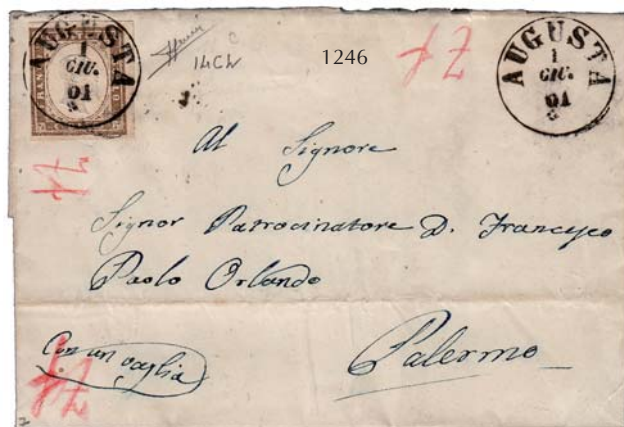 AUGUSTA
1
GIU.
61
14CW
1246
AUGUSTA
1
GIU.
61
Al Signore
Signor Patrocinatore D. Francesco
Paolo Orlando
Con un vaglia
Palermo